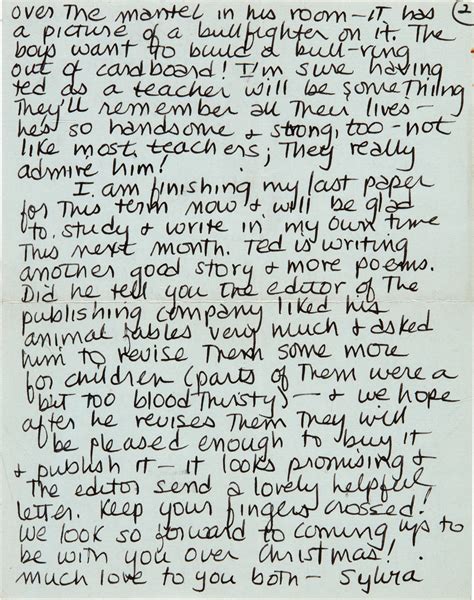 over the mantel in his room - it has
2
a picture of a bullfighter on it. The
boys want to build a bull-ring
out of cardboard! I'm sure having
Ted as a teacher will be something
They'll remember all Their lives -
he's so handsome & strong, too - not
like most teachers; They really
admire him!
I am finishing my last paper
for This term now & will be glad
to study & write in my own time
This next month. Ted is writing
another good story & more poems.
Did he tell you the editor of The
publishing company liked his
animal fables very much & asked
him to revise Them some more
for children (parts of Them were a
bit too bloodthirsty) - & we hope
after he revises Them They will
be pleased enough to buy it
& publish it - it looks promising &
The editor send a lovely helpful
letter. Keep your fingers crossed!
We look so forward to coming up to
be with you over Christmas!
much love to you both - Sylvia